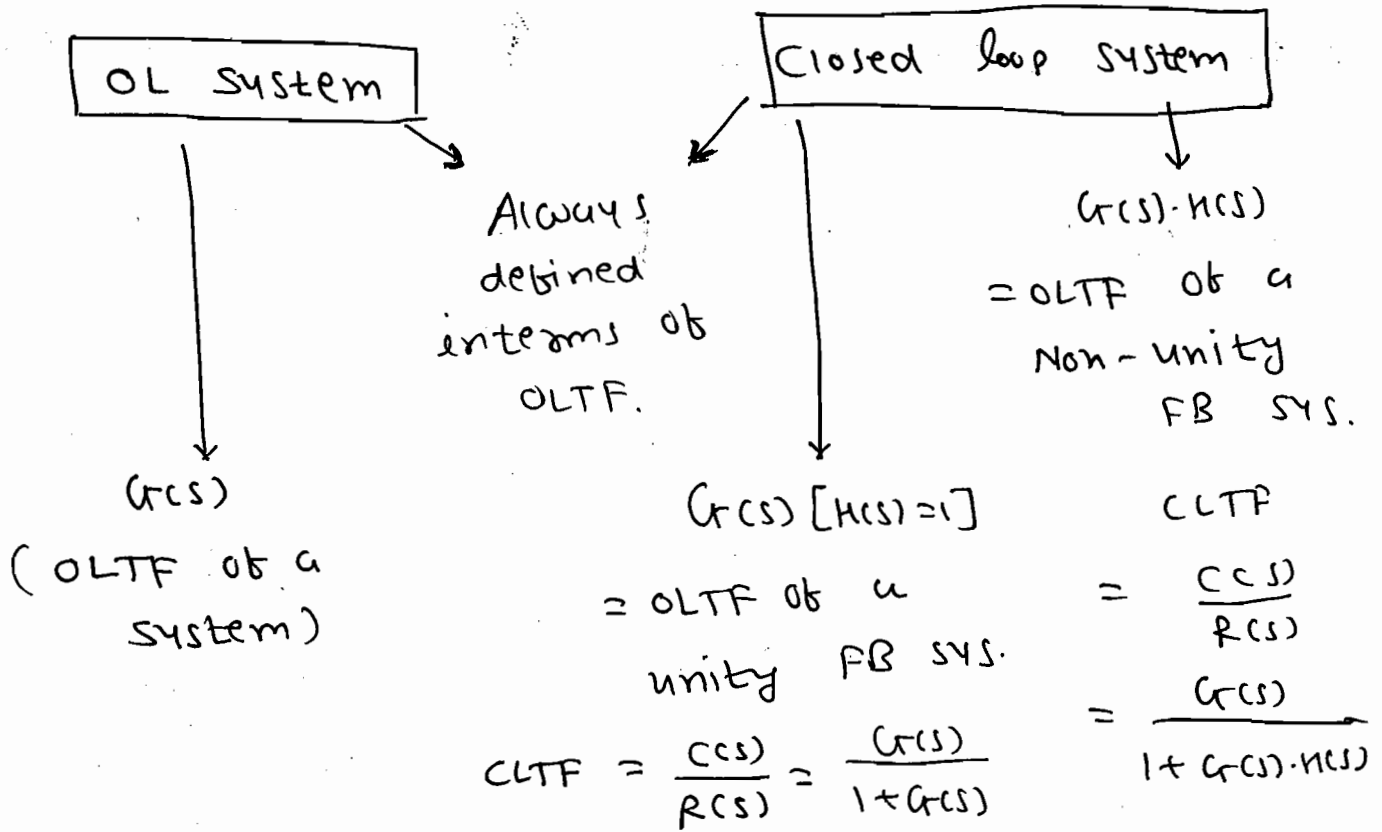 OL System
Closed loop system
Always
defined
interms of
OLTF.
G(s)
(OLTF of a
system)
G(s) [H(s)=1]
= OLTF of a
unity FB sys.
CLTF = C(s)/R(s) = G(s)/1+G(s)
G(s)·H(s)
= OLTF of a
Non-unity
FB sys.
CLTF
= C(s)/R(s)
= G(s)/1+G(s)·H(s)